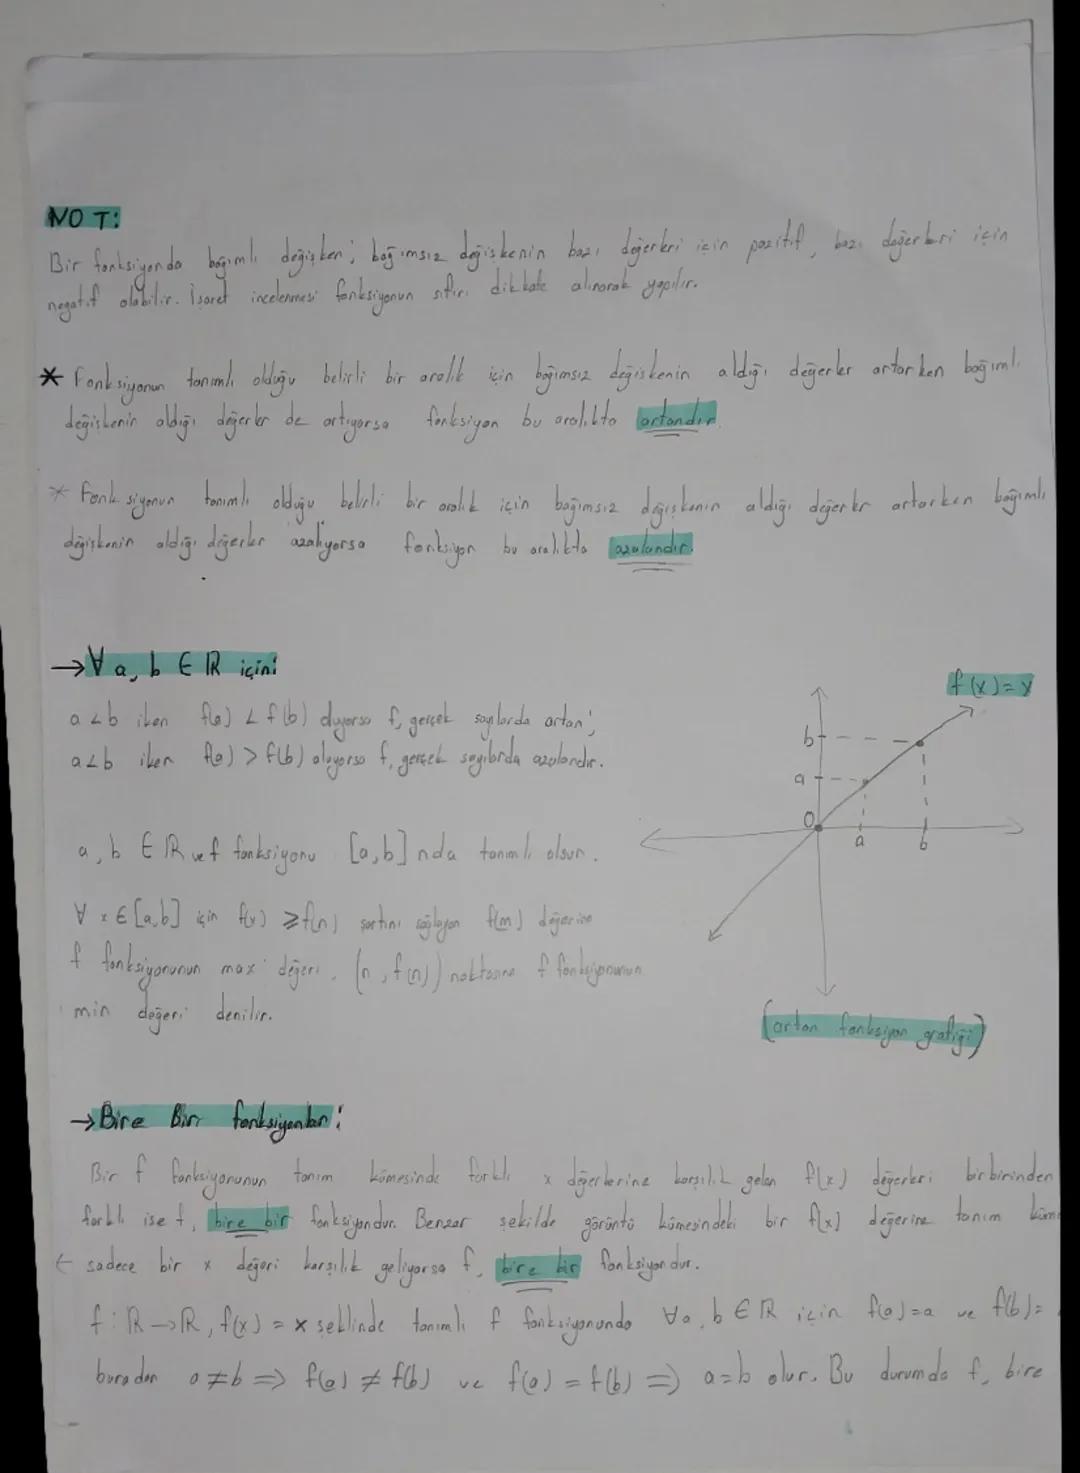 NOT:
Bir fonksiyonda bağımlı değişken; bağımsız değişkenin bazı değerleri için pozitif, bazı değerleri için
negatif olabilir. İşaret incelenmesi fonksiyonun sıfırı dikkate alınarak yapılır.
* Fonksiyonun tanımlı olduğu belirli bir aralık için bağımsız değişkenin aldığı değerler artarken bağımlı
değişkenin aldığı değerler de artıyorsa fonksiyon bu aralıkta artandır.
* Fonksiyonun tanımlı olduğu belirli bir aralık için bağımsız değişkenin aldığı değerler artarken bağımlı
değişkenin aldığı değerler azalıyorsa fonksiyon bu aralıkta azalandır.
→ ∀ a, b ∈ ℝ için:
a < b iken f(a) < f(b) oluyorsa f, gerçek sayılarda artan;
a < b iken f(a) > f(b) oluyorsa f, gerçek sayılarda azalandır.
f(x) = x
b
a
0
a
b
a, b ∈ ℝ ve f fonksiyonu [a,b] nda tanımlı olsun.
∀ x ∈ [a,b] için f(x) ≥ f(n) şartını sağlayan f(m) değerine
f fonksiyonunun max değeri, (n, f(n)) noktasına f fonksiyonunun
min değeri denilir.
(artan fonksiyon grafiği)
→ Bire Bir fonksiyonlar:
Bir f fonksiyonunun tanım kümesinde farklı x değerlerine karşılık gelen f(x) değerleri birbirinden
farklı ise f, bire bir fonksiyondur. Benzer şekilde görüntü kümesindeki bir f(x) değerine tanım
sadece bir x değeri karşılık geliyorsa f, bire bir fonksiyondur.
f: ℝ → ℝ, f(x) = x şeklinde tanımlı f fonksiyonunda ∀ a, b ∈ ℝ için f(a) = a ve f(b) =
buradan a ≠ b ⇒ f(a) ≠ f(b) ve f(a) = f(b) ⇒ a = b olur. Bu durumda f, bire